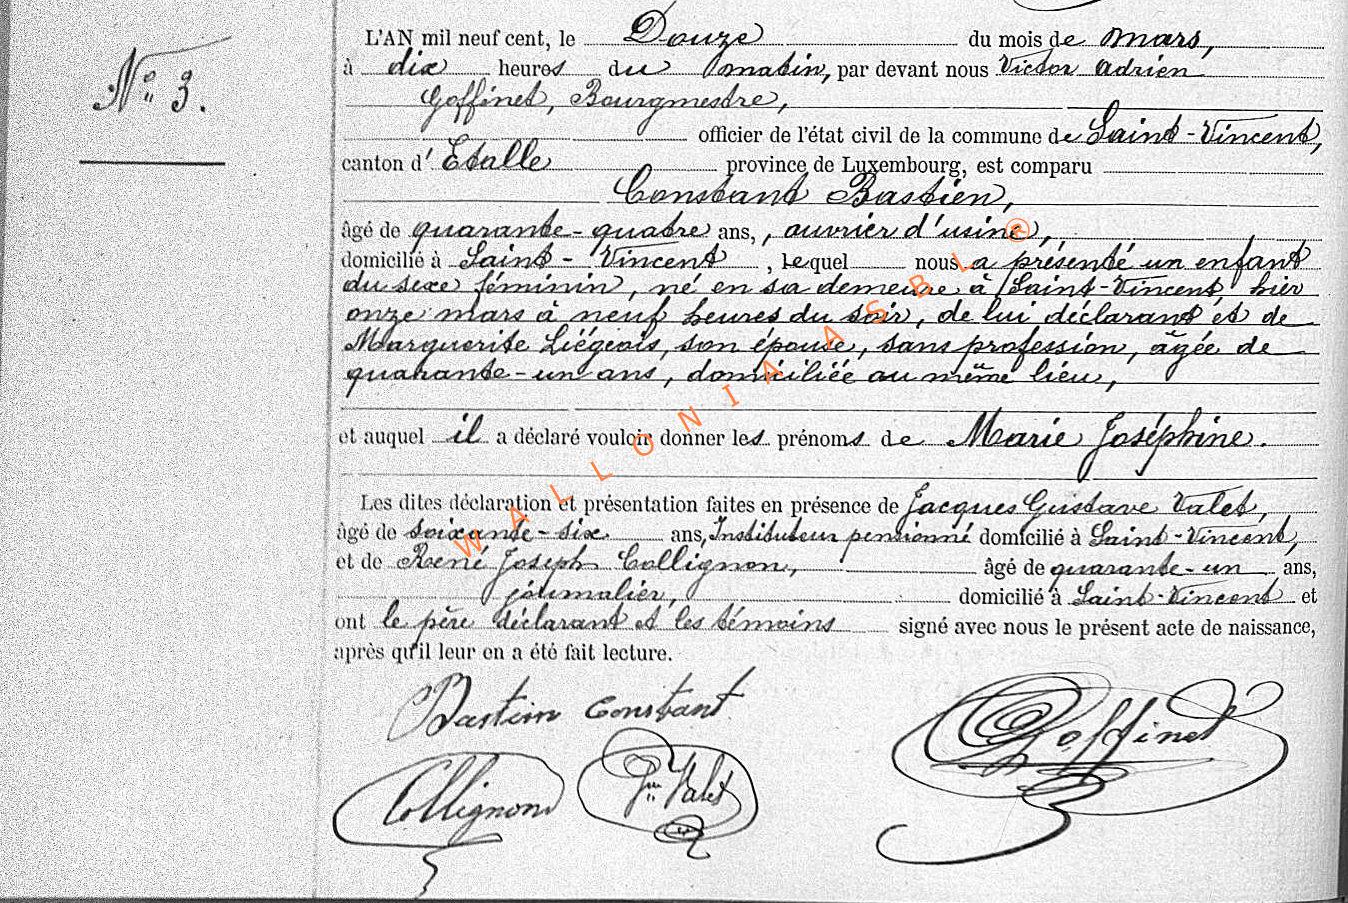 N° 3.
L'AN mil neuf cent, le Douze du mois de mars,
à dix heures du matin, par devant nous Victor Adrien
Goffinet, Bourgmestre,
officier de l'état civil de la commune de Saint-Vincent,
canton d'Etalle province de Luxembourg, est comparu
Constant Bastien,
âgé de quarante-quatre ans, , ouvrier d'usine,
domicilié à Saint-Vincent, lequel nous a présenté un enfant
du sexe féminin, né en sa demeure à Saint-Vincent hier
onze mars à neuf heures du soir, de lui déclarant et de
Marguerite Liégeois, son épouse, sans profession, âgée de
quarante-un ans, domiciliée au même lieu,
et auquel il a déclaré vouloir donner les prénoms de Marie Joséphine.
Les dites déclaration et présentation faites en présence de Jacques Gustave Valet,
âgé de soixante-six ans, Instituteur pensionné domicilié à Saint-Vincent,
et de René Joseph Collignon, âgé de quarante-un ans,
journalier, domicilié à Saint-Vincent et
ont le père déclarant et les témoins signé avec nous le présent acte de naissance,
après qu'il leur en a été fait lecture.
Bastien Constant
Goffinet
Collignon Valet
WALLONIA ASBL ®